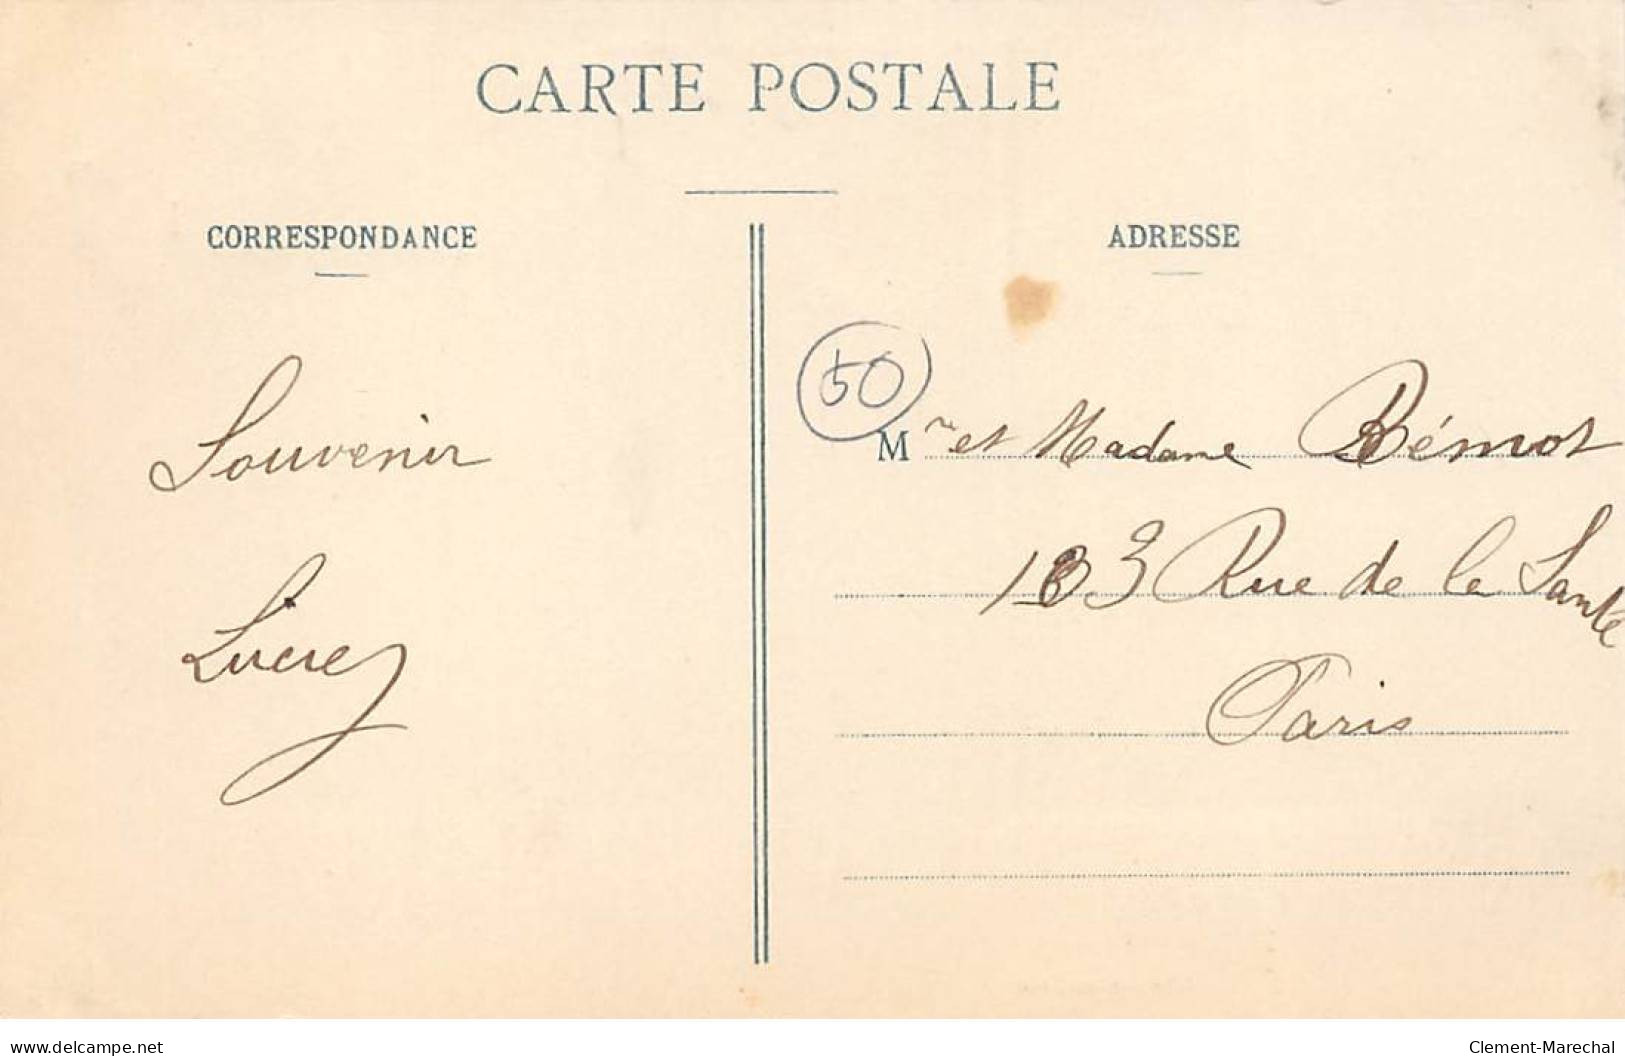 CARTE POSTALE
CORRESPONDANCE
ADRESSE
50
Souvenir
Mr et Madame Bémot
Rue de la Santé
Paris
www.delcampe.net
Clement-Marechal